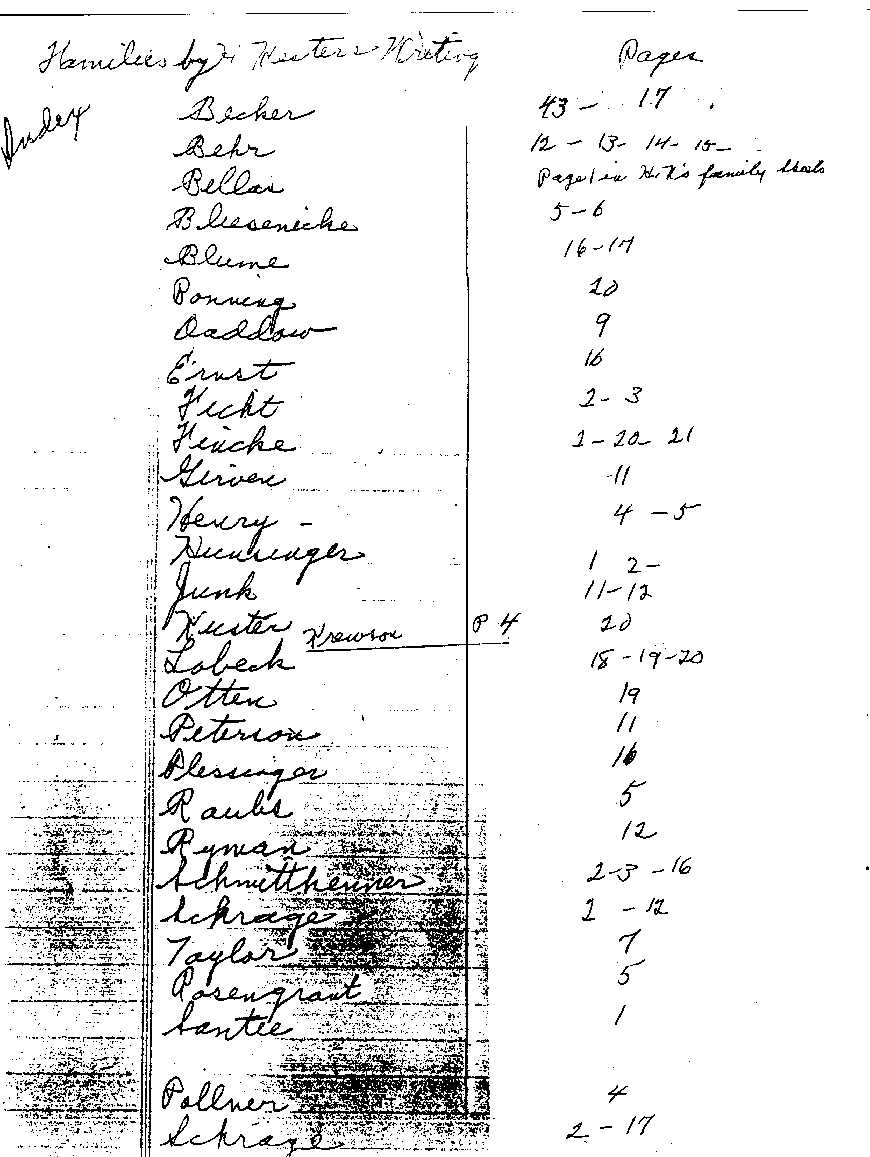 Families by H Kusters Writing Pages
Index
Becker 43 - 17
Behr 12 - 13 - 14 - 15 -
Bellas Page 1 in H.K's family
5 - 6
Bliesenicke
Blume 16 - 17
Ponning 20
Daddow 9
Ernst 16
Ficht 2 - 3
Fincke 2 - 20 - 21
Girven 11
Henry - 4 - 5
Hunsinger 1 2 -
Junk 11 - 12
Kuster Krewson P 4 20
Lobeck 18 - 19 - 20
Otten 19
Peterson 11
Plessinger 16
Raubs 5
Ryman 12
Schmittheuner 2 - 3 - 16
Schrage 2 - 12
Taylor 7
Rosengrant 5
Santee 1
Pollner 4
Schrage 2 - 17